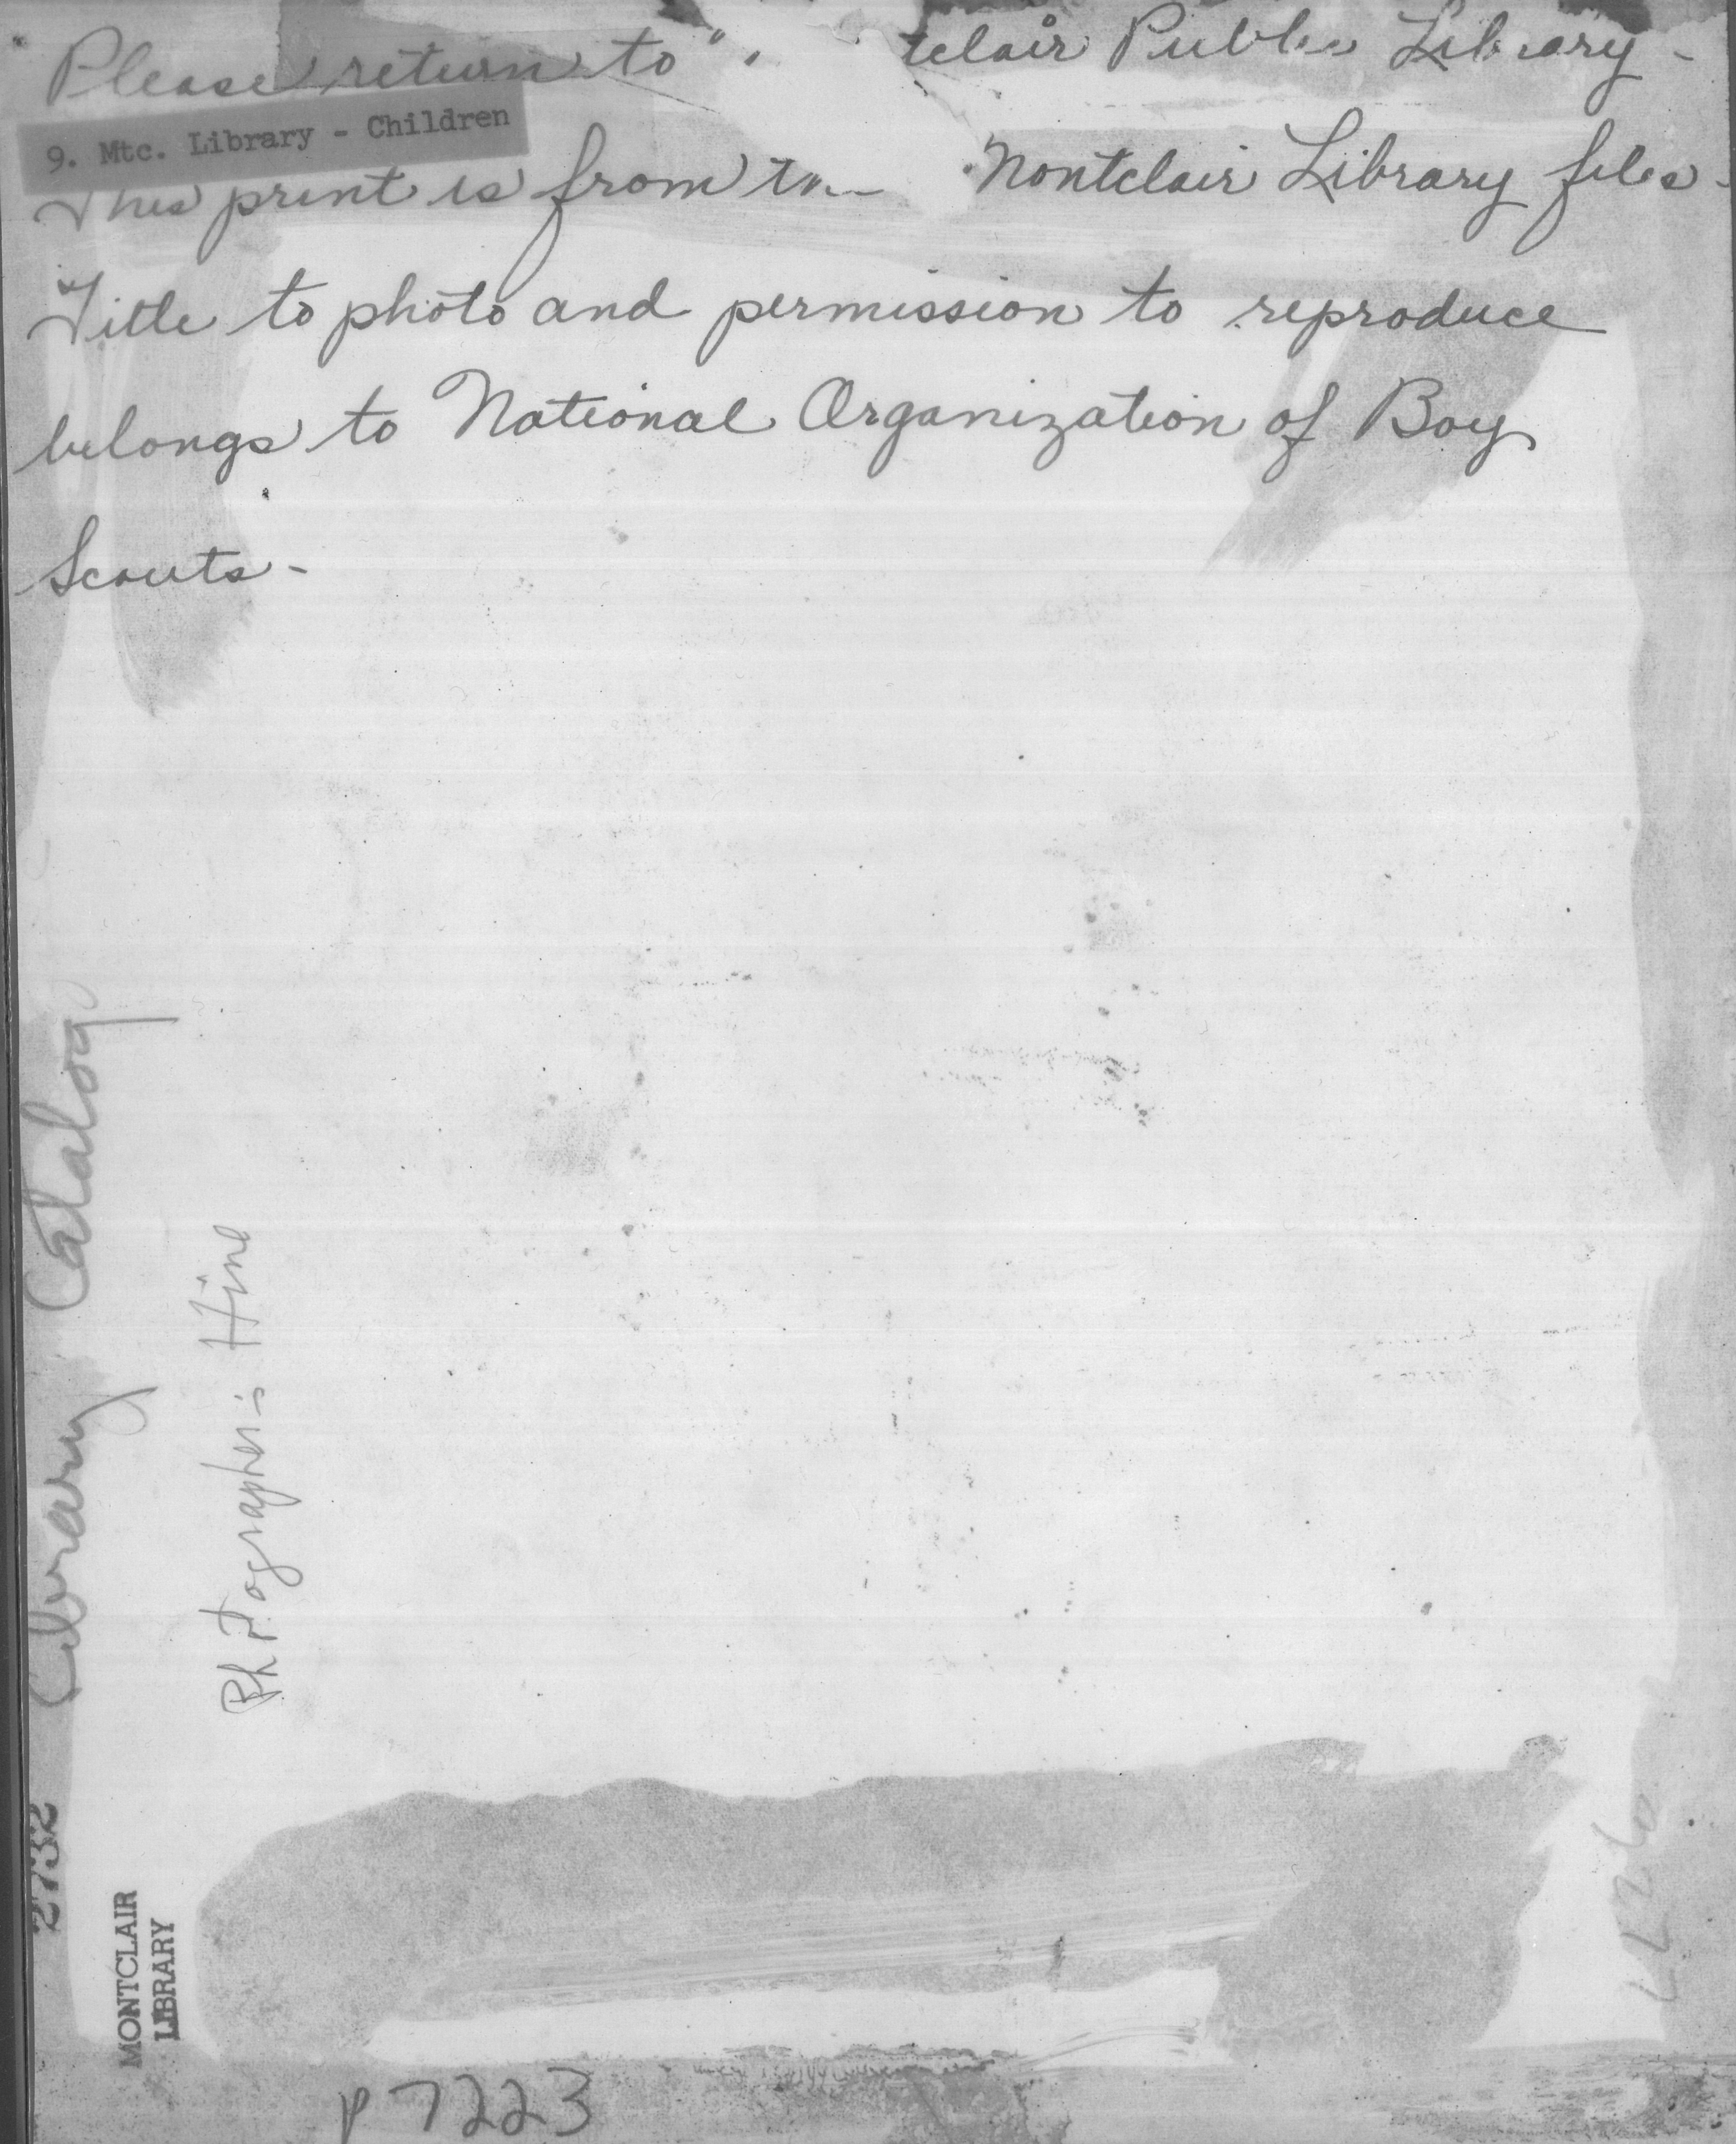 Please return to " tclair Public Library -
9. Mtc. Library - Children
This print is from Montclair Library files -
Title to photo and permission to reproduce
belongs to National Organization of Boy
Scouts -
2732 Library Catalog
Photographer: Hine
MONTCLAIR
LIBRARY
P 7223